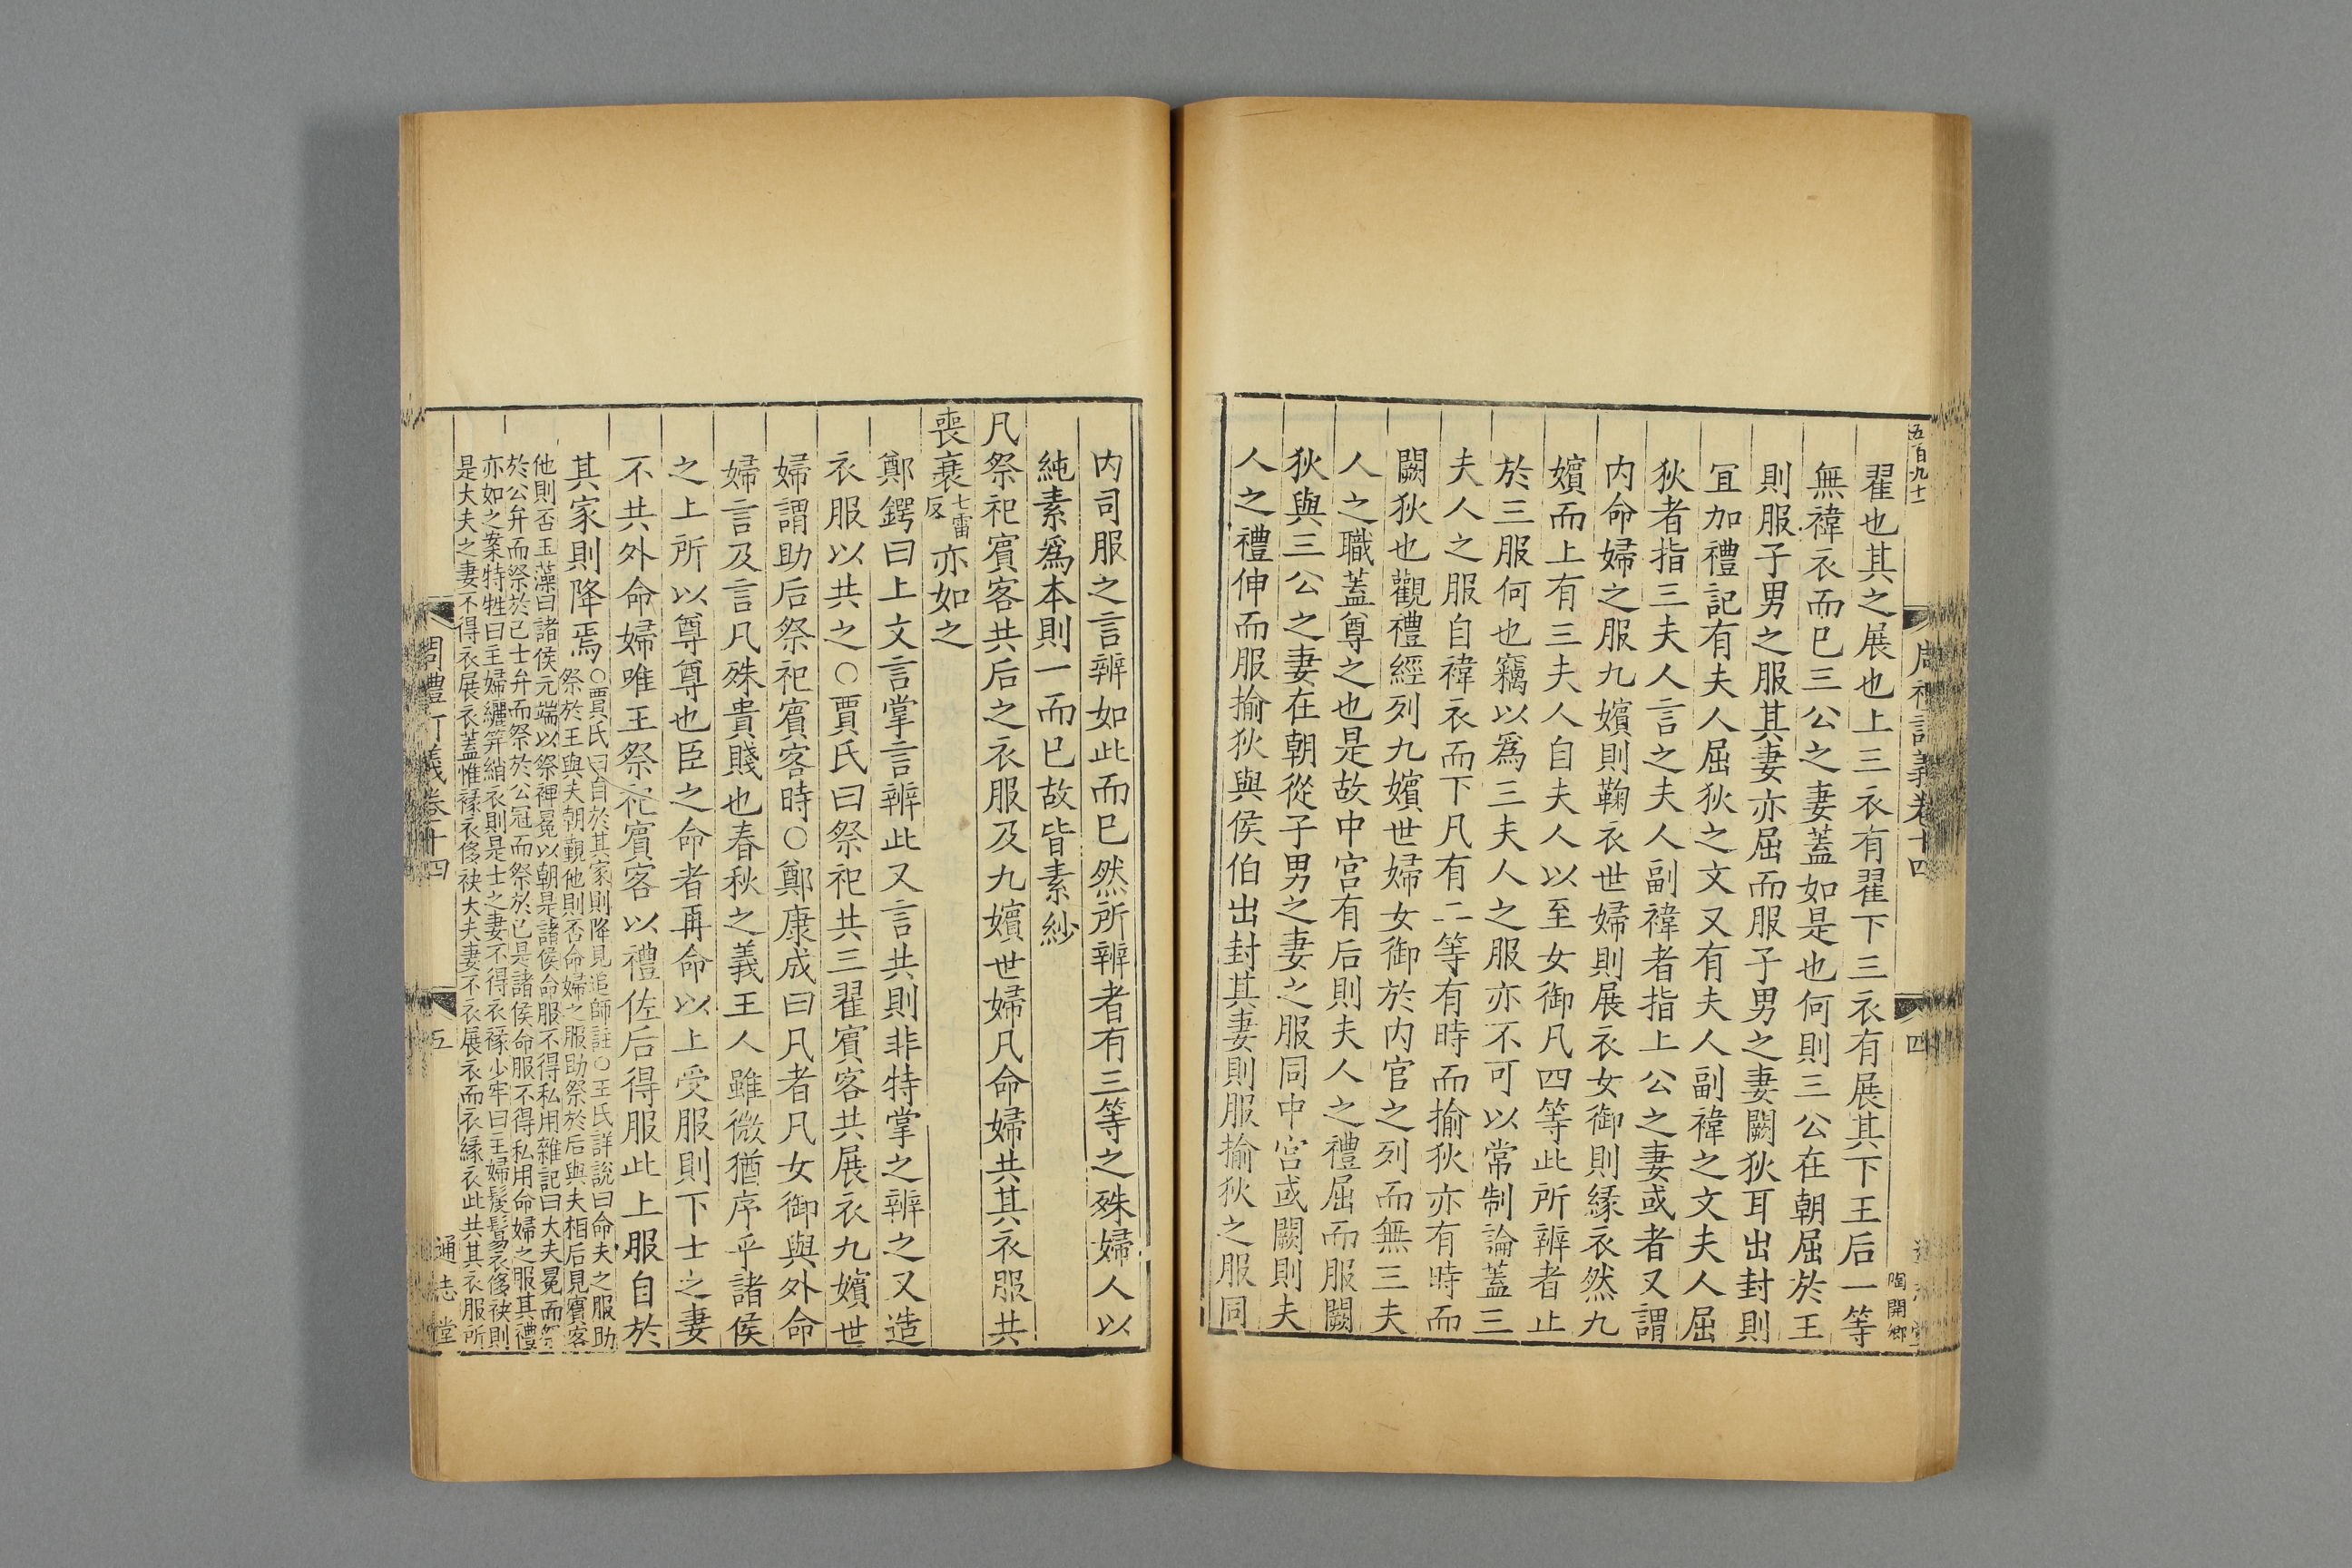 五百九十一
周禮訂義卷十四
四
陶開鄉
翟也其之展也上三衣有翟下三衣有展其下王后一等
無褘衣而已三公之妻蓋如是也何則三公在朝屈於王
則服子男之服其妻亦屈而服子男之妻闕狄耳出封則
冝加禮記有夫人屈狄之文又有夫人副褘之文夫人屈
狄者指三夫人言之夫人副褘者指上公之妻或者又謂
内命婦之服九嬪則鞠衣世婦則展衣女御則緣衣然九
嬪而上有三夫人自夫人以至女御凡四等此所辨者止
於三服何也竊以爲三夫人之服亦不可以常制論蓋三
夫人之服自褘衣而下凡有二等有時而揄狄亦有時而
闕狄也觀禮經列九嬪世婦女御於内官之列而無三夫
人之職蓋尊之也是故中宮有后則夫人之禮屈而服闕
狄與三公之妻在朝從子男之妻之服同中宮或闕則夫
人之禮伸而服揄狄與侯伯出封其妻則服揄狄之服同
内司服之言辨如此而已然所辨者有三等之殊婦人以
純素爲本則一而已故皆素紗
凡祭祀賓客共后之衣服及九嬪世婦凡命婦共其衣服共
喪衰七雷反亦如之
鄭鍔曰上文言掌言辨此又言共則非特掌之辨之又造
衣服以共之○賈氏曰祭祀共三翟賓客共展衣九嬪世
婦謂助后祭祀賓客時○鄭康成曰凡者凡女御與外命
婦言及言凡殊貴賤也春秋之義王人雖微猶序乎諸侯
之上所以尊尊也臣之命者再命以上受服則下士之妻
不共外命婦唯王祭祀賓客以禮佐后得服此上服自於
其家則降焉○賈氏曰自於其家則降見追師註○王氏詳說曰命夫之服助
祭於王與夫朝覲他則否命婦之服助祭於后與夫相后見賓客
他則否玉藻曰諸侯元端以祭裨冕以朝是諸侯命服不得私用雜記曰大夫冕而祭
於公弁而祭於己士弁而祭於公冠而祭於己是諸侯命服不得私用命婦之服其禮
亦如之案特牲曰主婦纚笄綃衣則是士之妻不得衣褖少牢曰主婦髲鬄衣侈袂則
是大夫之妻不得衣展衣蓋惟褖衣侈袂大夫妻不衣展衣而衣緣衣此共其衣服所
周禮訂義卷十四
五
通志堂